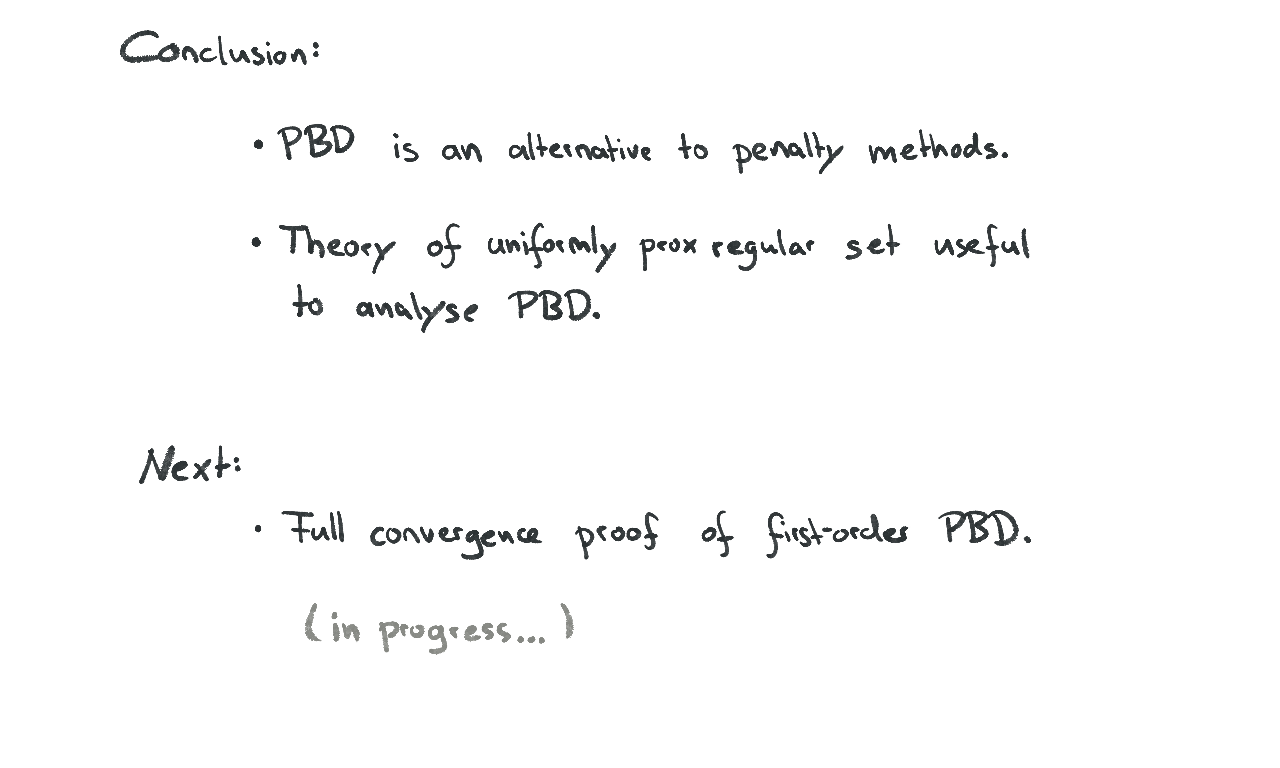 Conclusion:
• PBD is an alternative to penalty methods.
• Theory of uniformly prox regular set useful
to analyse PBD.
Next:
• Full convergence proof of first-order PBD.
(in progress...)